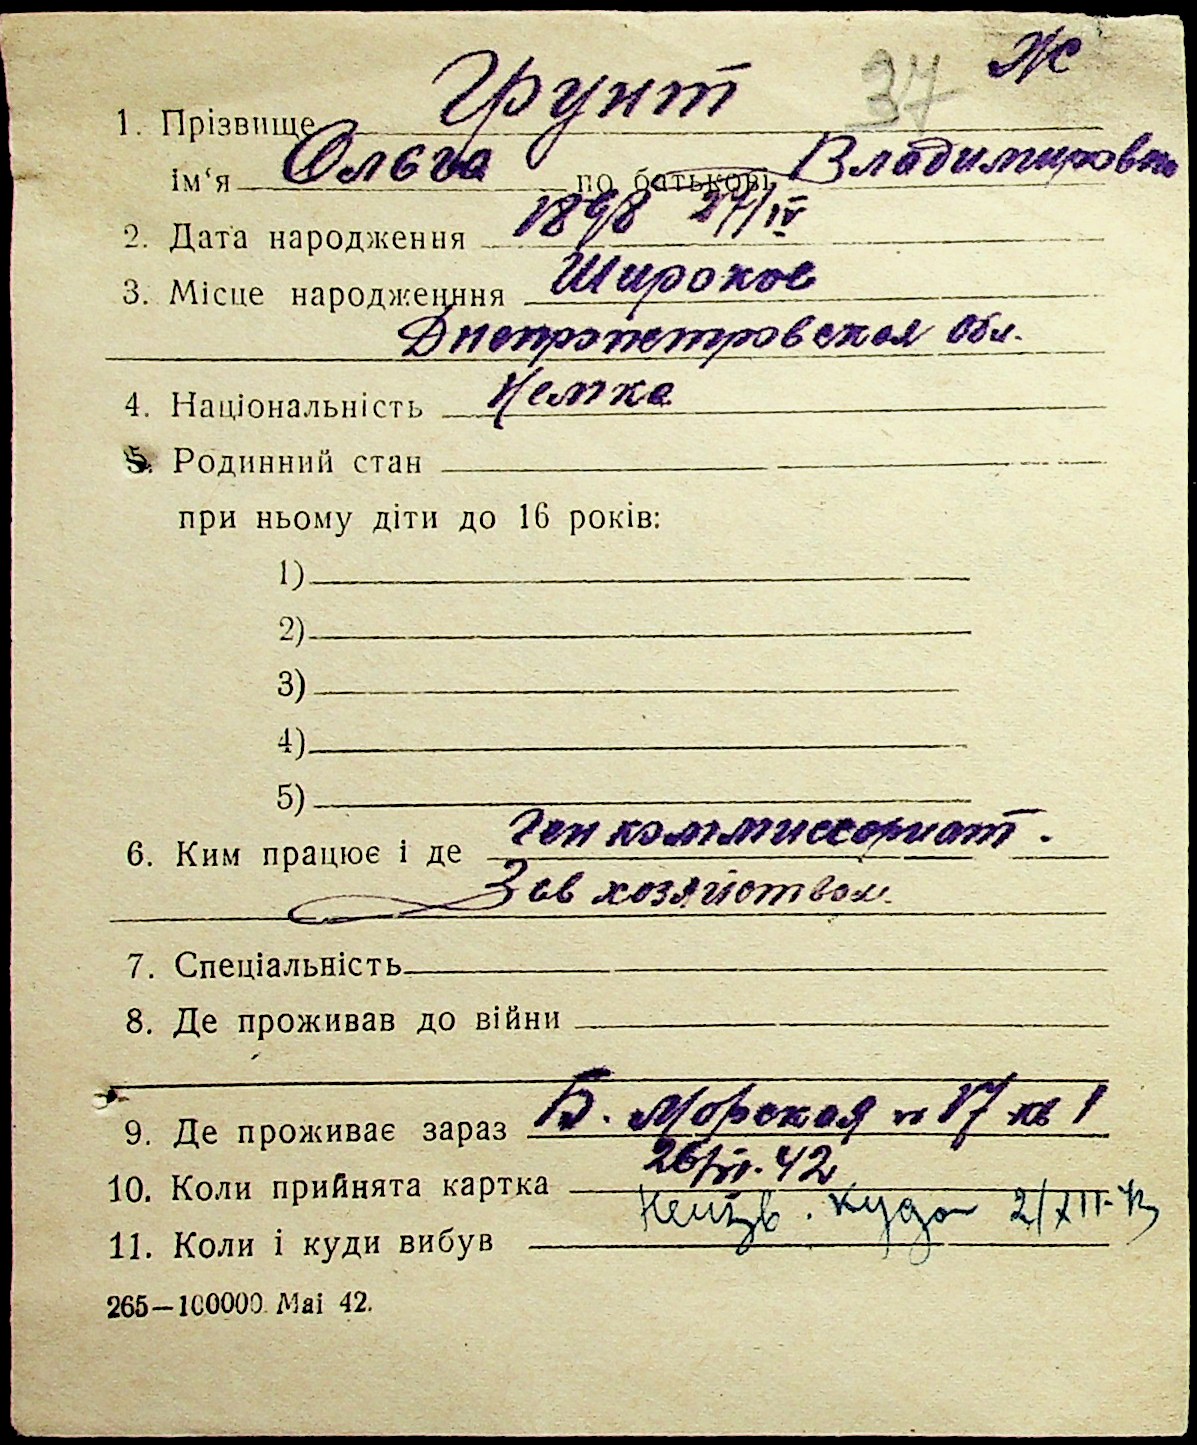 37 Ж
1. Прізвище Грунт
ім‘я Ольга по батькові Владимировн
2. Дата народження 1898 27/IV
3. Місце народженння Широкое
Днепропетровская обл.
4. Національність Немка
5. Родинний стан
при ньому діти до 16 років:
1)
2)
3)
4)
5)
6. Ким працює і де Ген коммиссариат.
Зав хозяйством.
7. Спеціальність
8. Де проживав до війни
9. Де проживає зараз Б. Морская № 17 кв 1
10. Коли прийнята картка 42
11. Коли і куди вибув Неизв. куда 2/XII-
265—100000. Маі 42.